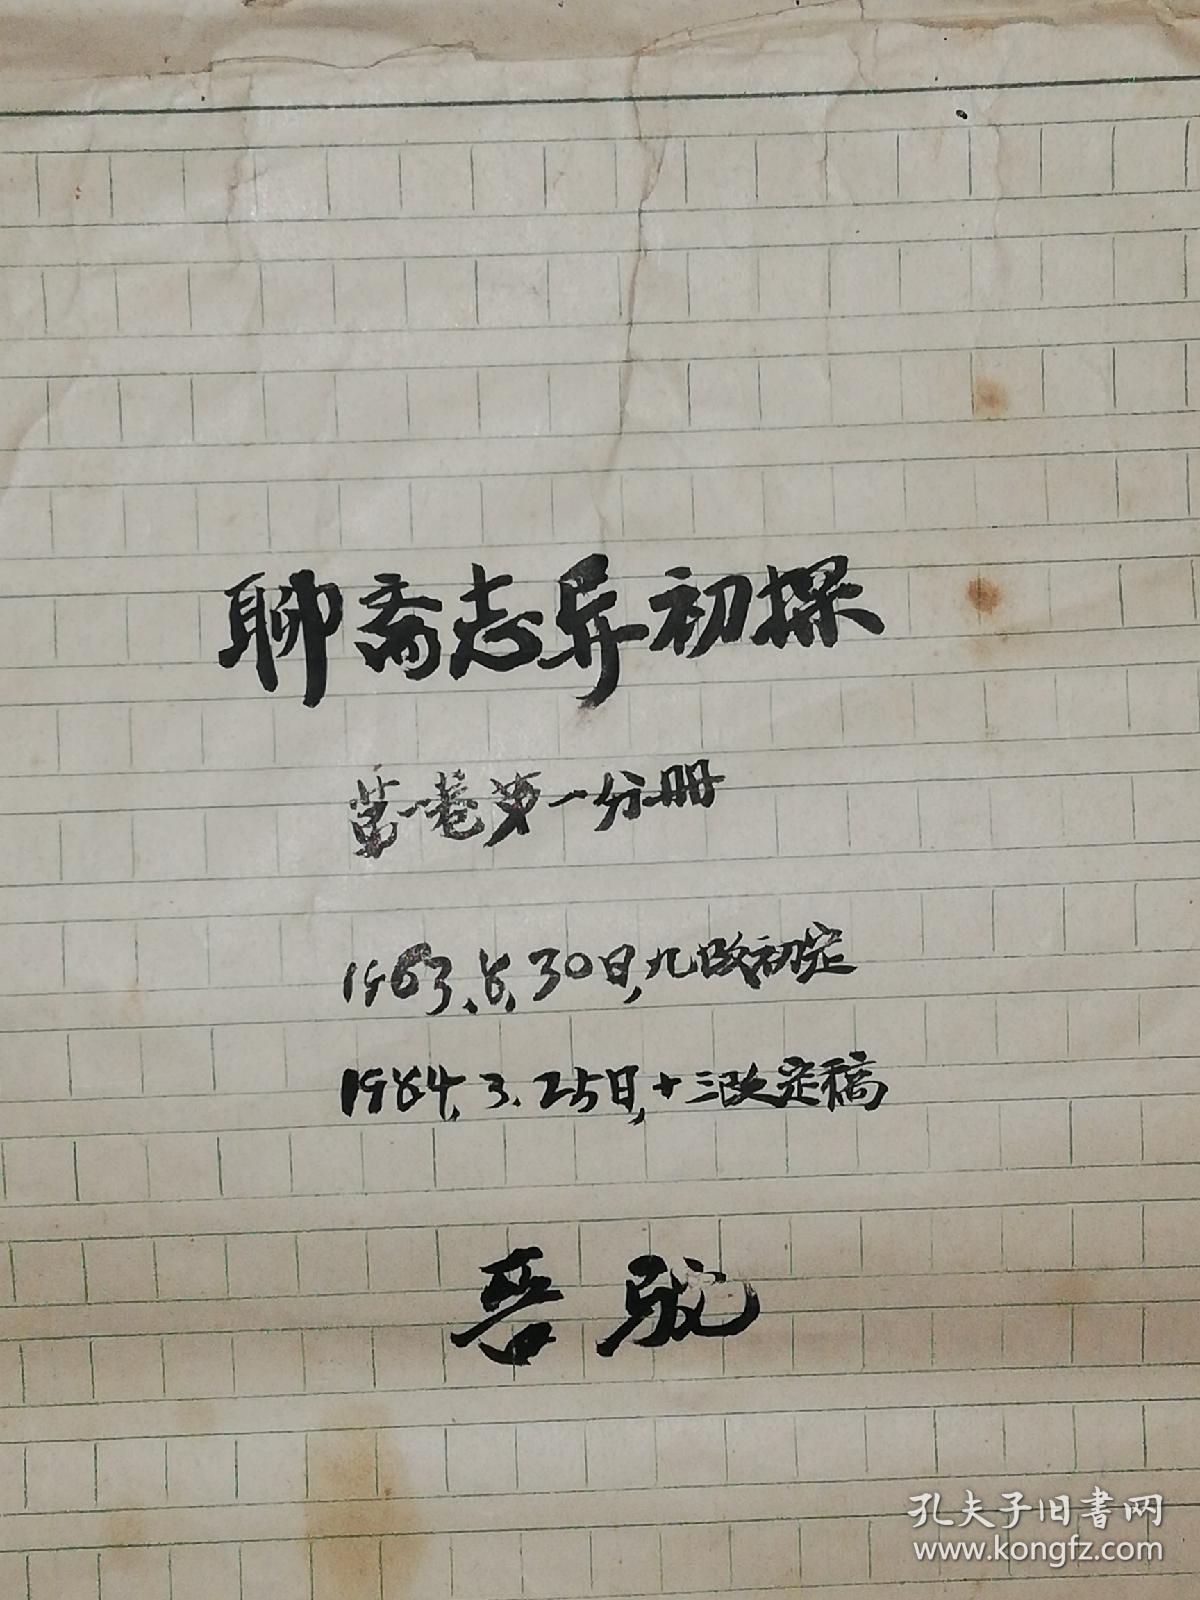 聊斋志异初探
第一卷第一分册
1963.8.30日,九改初定
1984.3.25日,十三改定稿
晋驼
孔夫子旧书网
www.kongfz.com